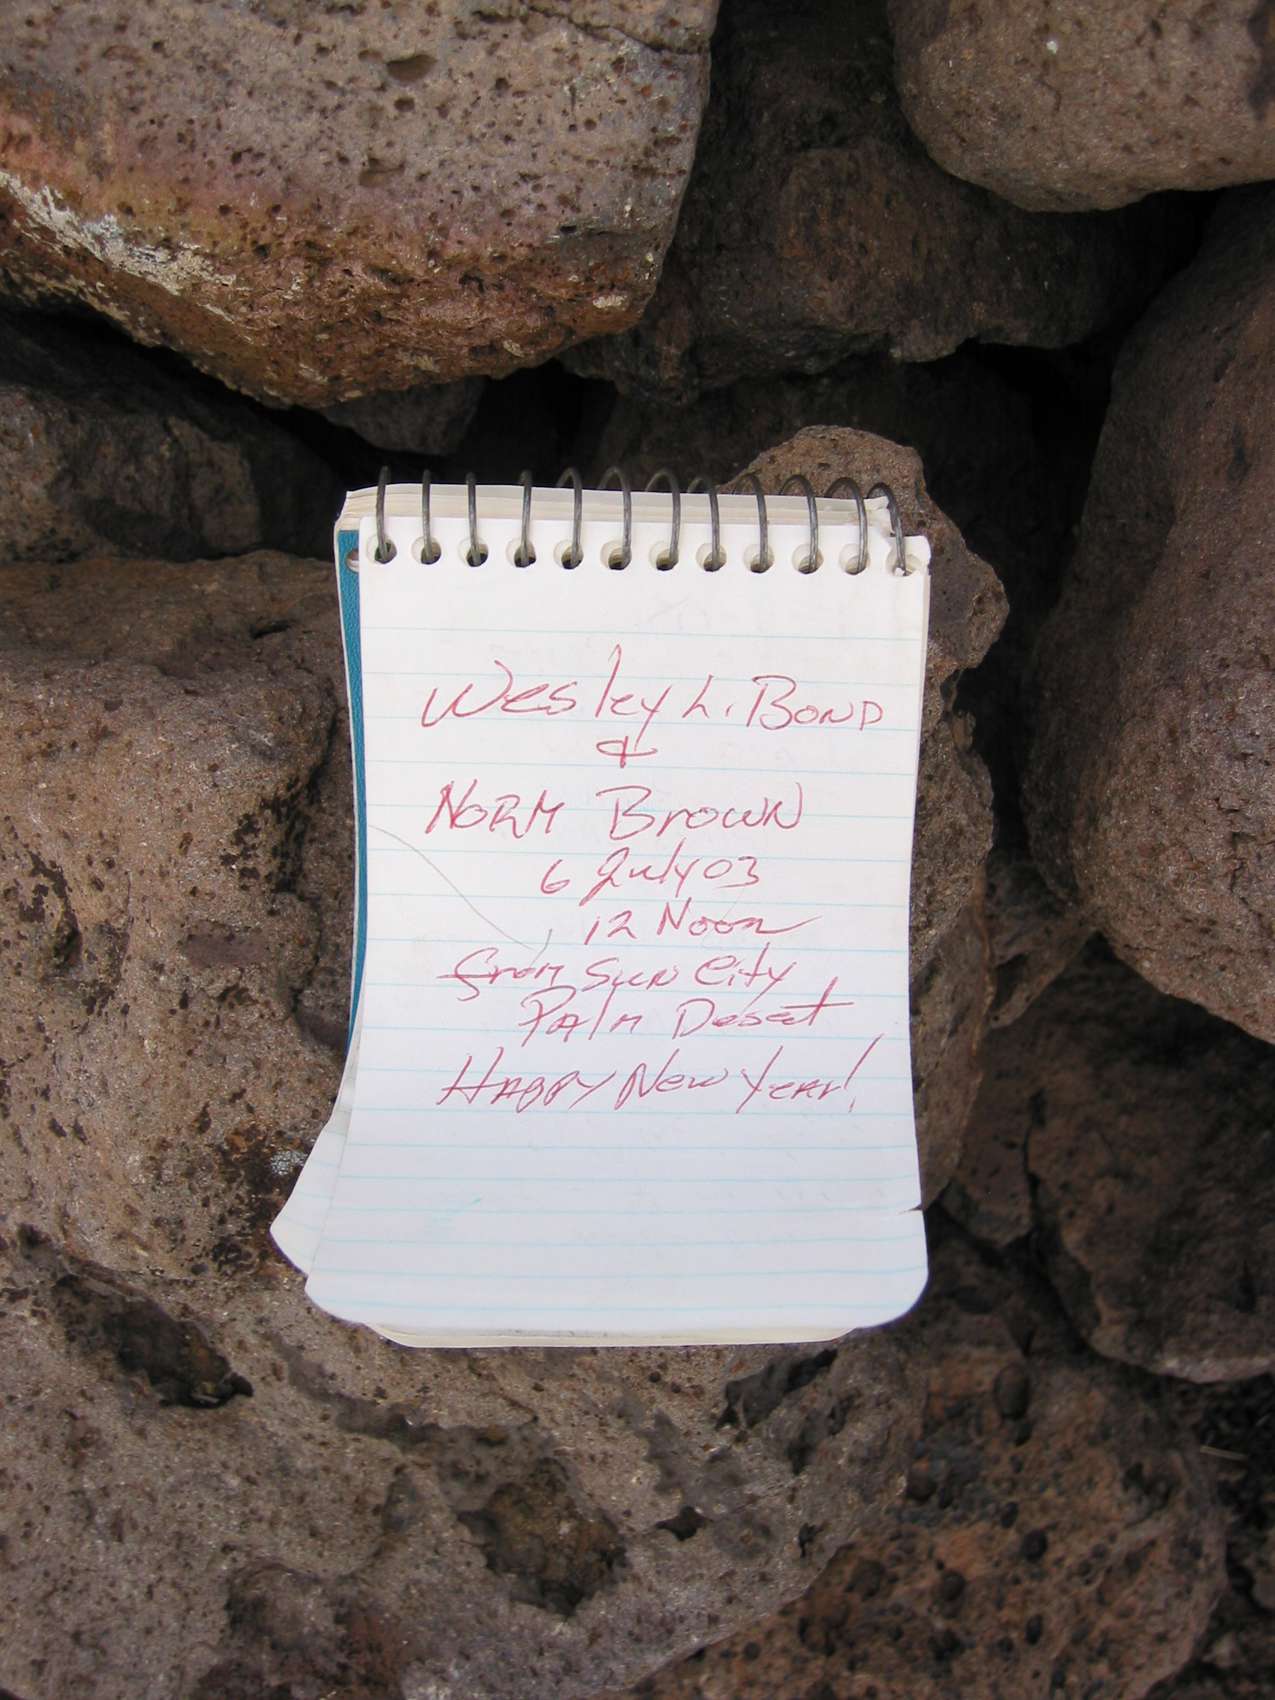 Wesley L. BOND
&
NORM BROWN
6 July 03
12 Noon
from Sun City
Palm Desert
HAPPY New Year!